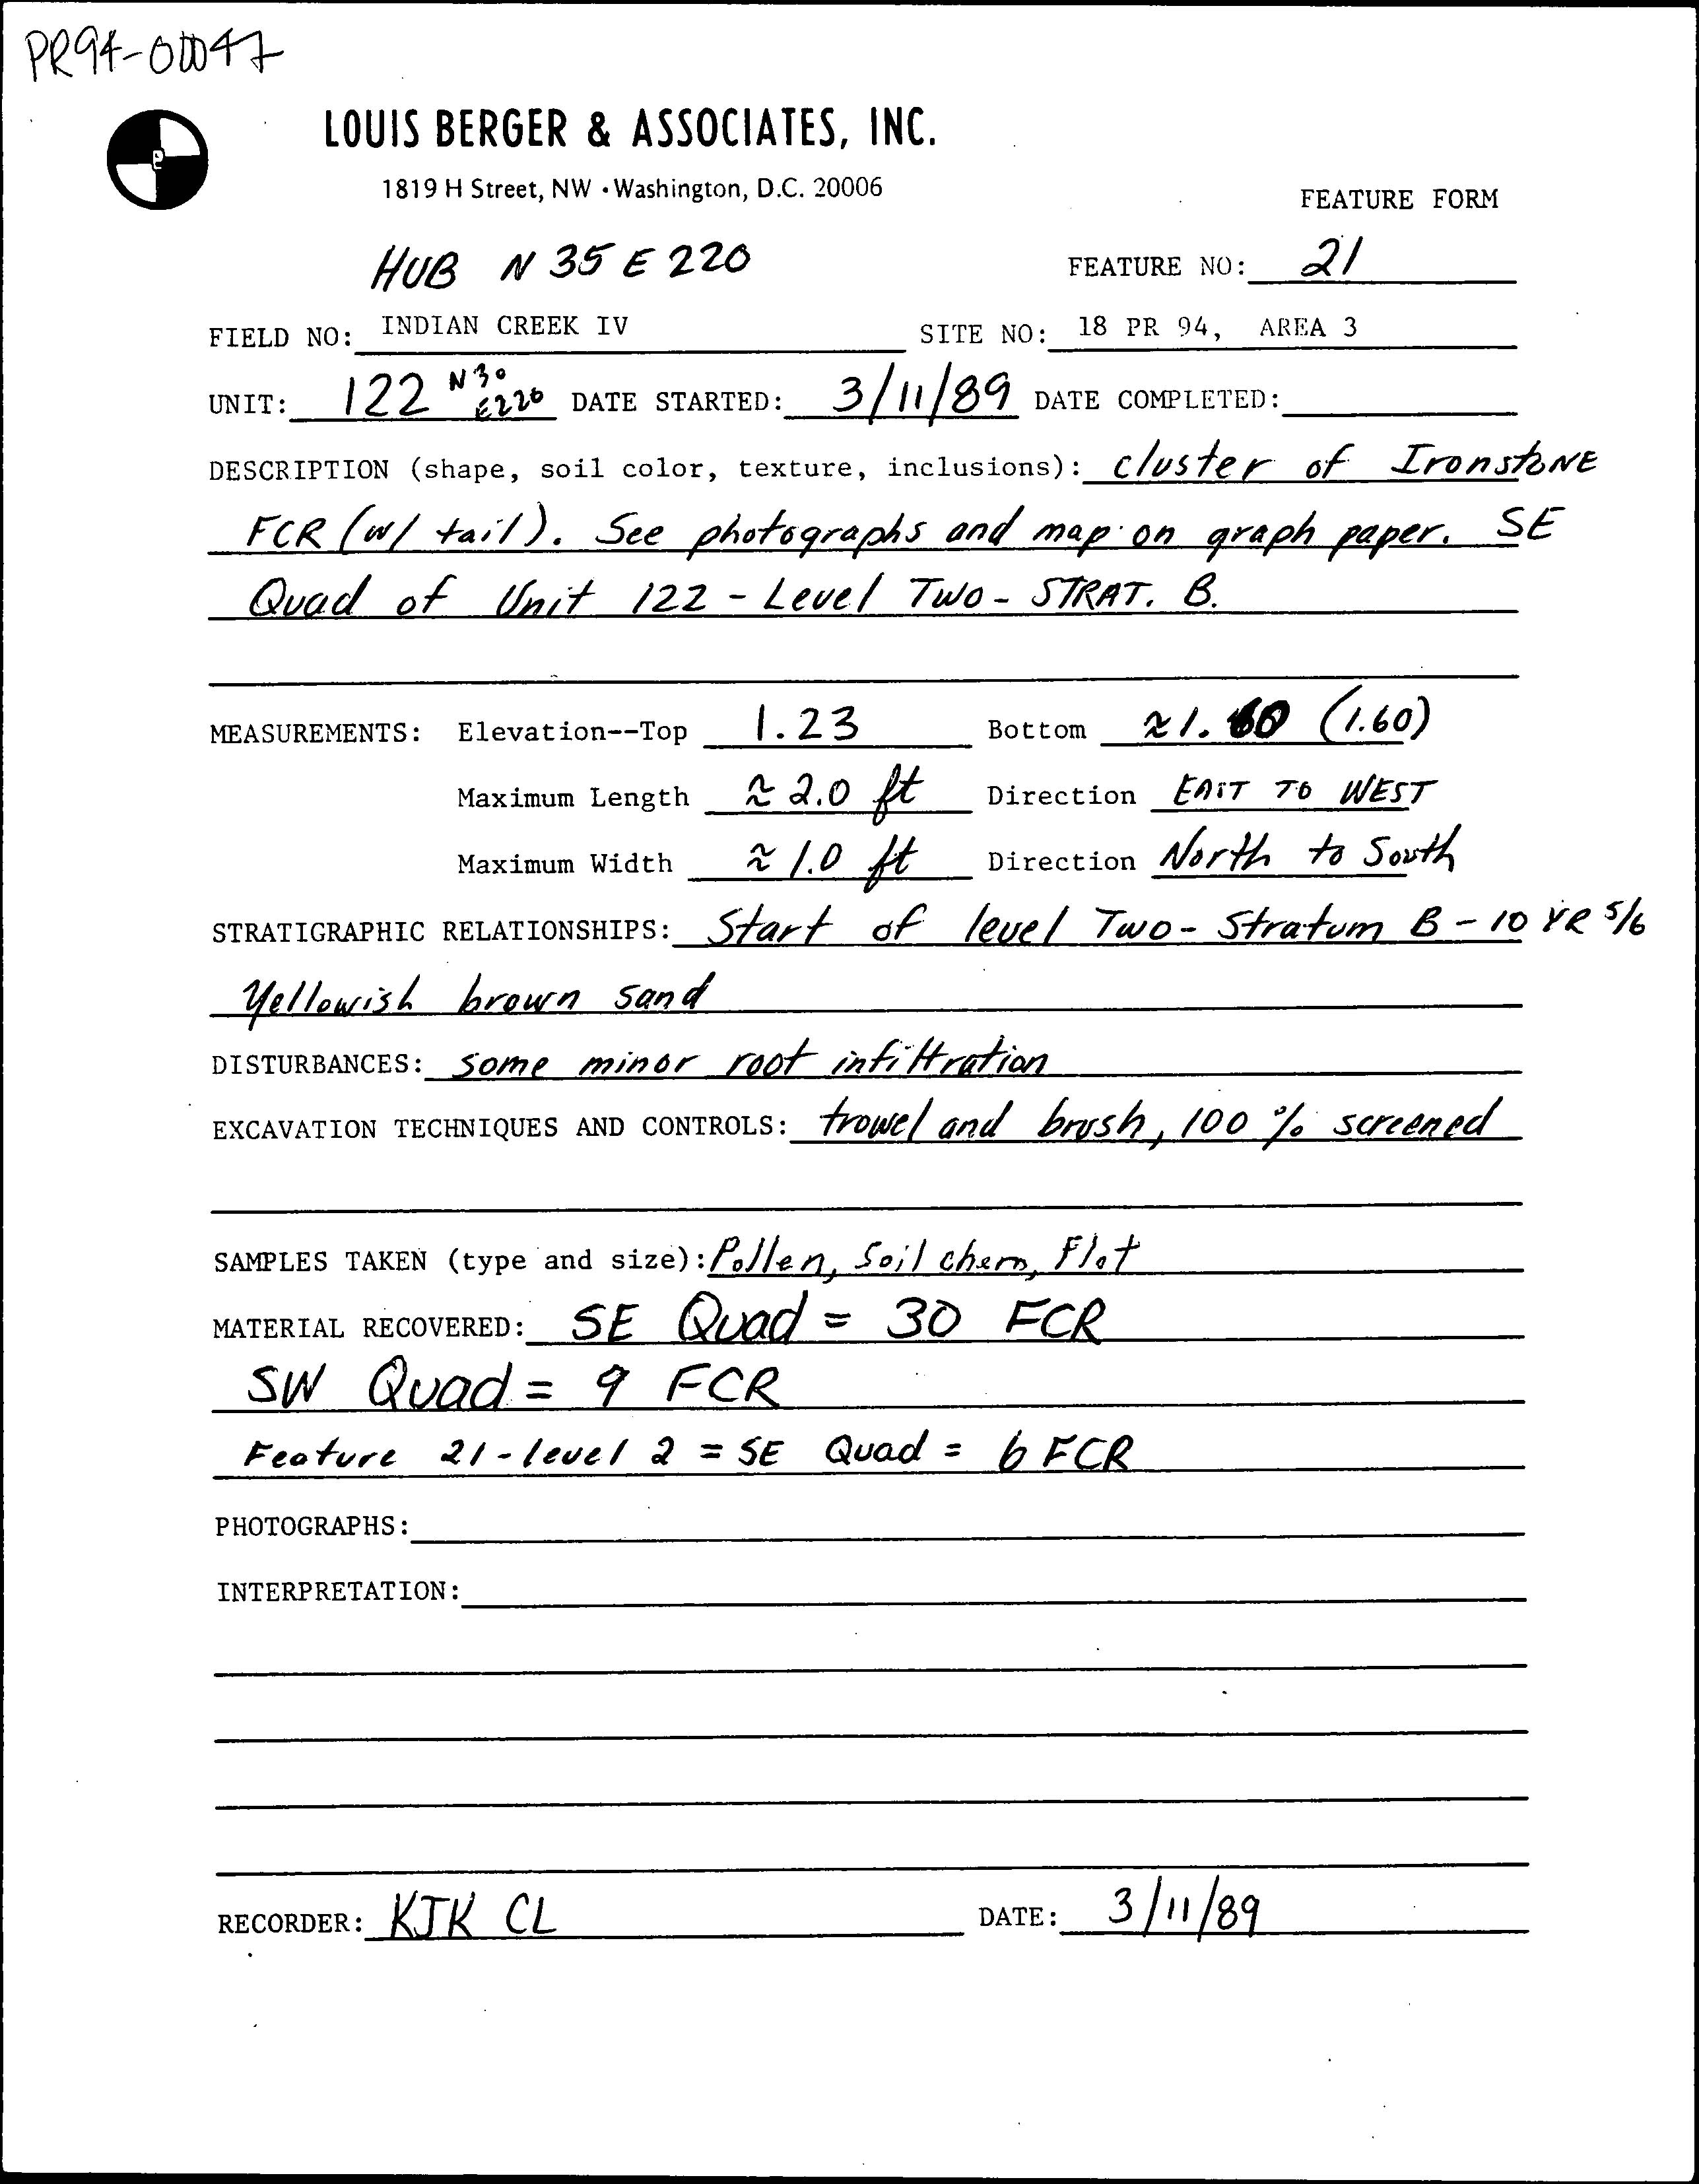 PR94-00047
LOUIS BERGER & ASSOCIATES, INC.
1819 H Street, NW · Washington, D.C. 20006
FEATURE FORM
HUB N 35 E 220
FEATURE NO: 21
FIELD NO: INDIAN CREEK IV SITE NO: 18 PR 94, AREA 3
UNIT: 122 N30 E220 DATE STARTED: 3/11/89 DATE COMPLETED:
DESCRIPTION (shape, soil color, texture, inclusions): cluster of IronstoNE
FCR (w/ tail). See photographs and map on graph paper. SE
Quad of Unit 122 - Level Two - STRAT. B.
MEASUREMENTS: Elevation--Top 1.23 Bottom ≈1.60 (1.60)
Maximum Length ≈ 2.0 ft Direction EAST TO WEST
Maximum Width ≈ 1.0 ft Direction North to South
STRATIGRAPHIC RELATIONSHIPS: Start of level Two - Stratum B - 10 YR 5/6
Yellowish brown sand
DISTURBANCES: some minor root infiltration
EXCAVATION TECHNIQUES AND CONTROLS: trowel and brush, 100 % screened
SAMPLES TAKEN (type and size): Pollen, Soil chem, Flot
MATERIAL RECOVERED: SE Quad = 30 FCR
SW Quad = 9 FCR
Feature 21 - level 2 = SE Quad = 6 FCR
PHOTOGRAPHS:
INTERPRETATION:
RECORDER: KJK CL DATE: 3/11/89